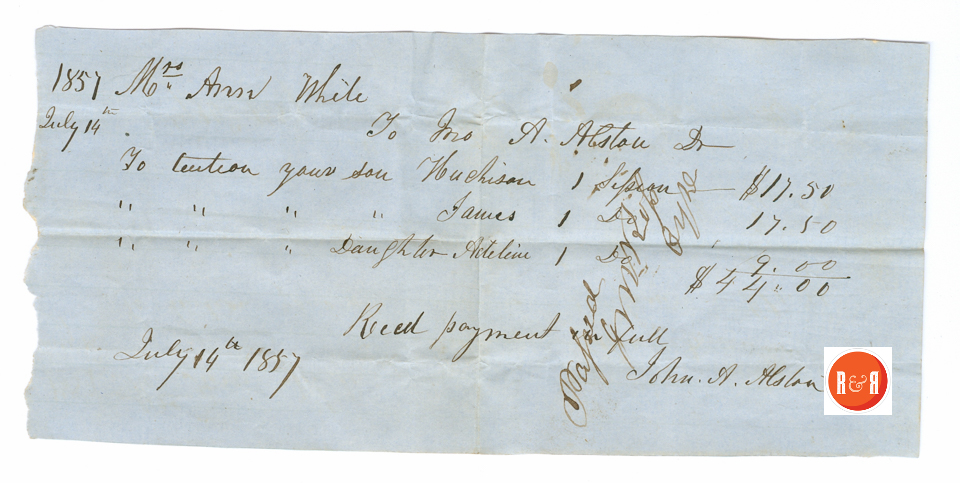 1857 Mrs Ann White
July 14th
To Jno A. Alston Dr
To tuition your son Huchison 1 Session $17.50
" " " " James 1 Do 17.50
" " " Daughter Adeline 1 Do 9.00
$44.00
Recd payment in full
July 14th 1857
John. A. Alston
R&R